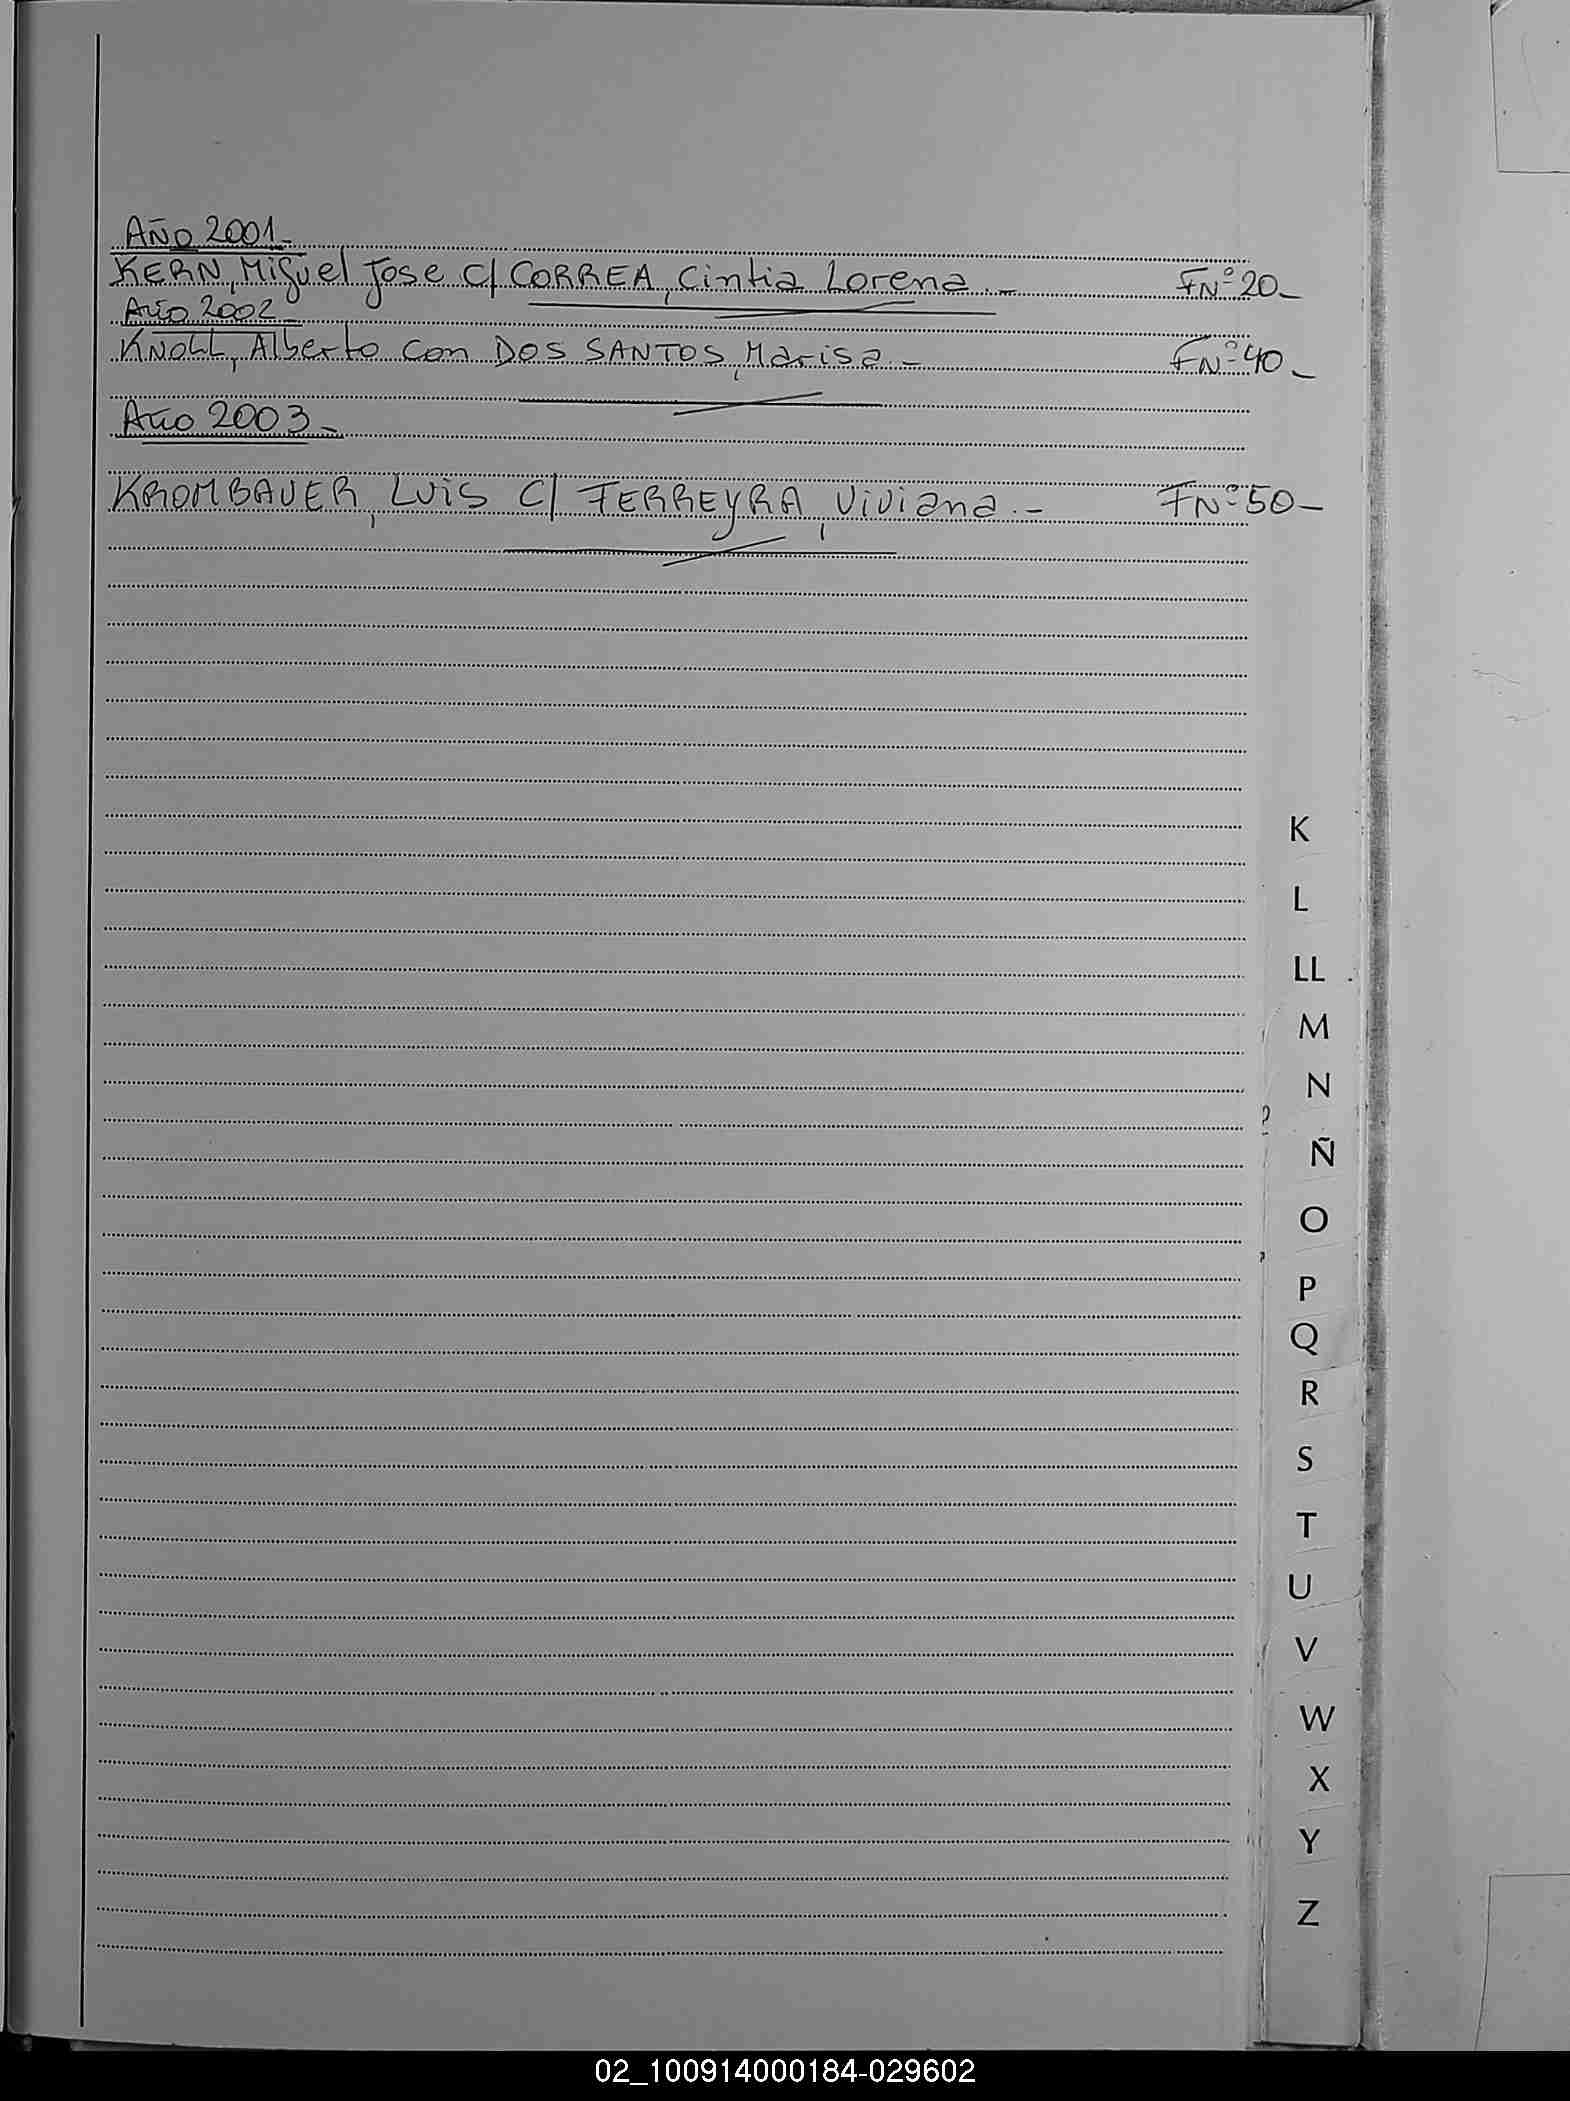 Año 2001-
KERN, Miguel Jose c/ CORREA, Cintia Lorena.- FNº20-
Año 2002-
KNOLL, Alberto con DOS SANTOS, Marisa.- FNº40-
Año 2003-
KROMBAUER, Luis c/ FERREYRA, Viviana.- FNº50-
K
L
LL
M
N
Ñ
O
P
Q
R
S
T
U
V
W
X
Y
Z
02_100914000184-029602